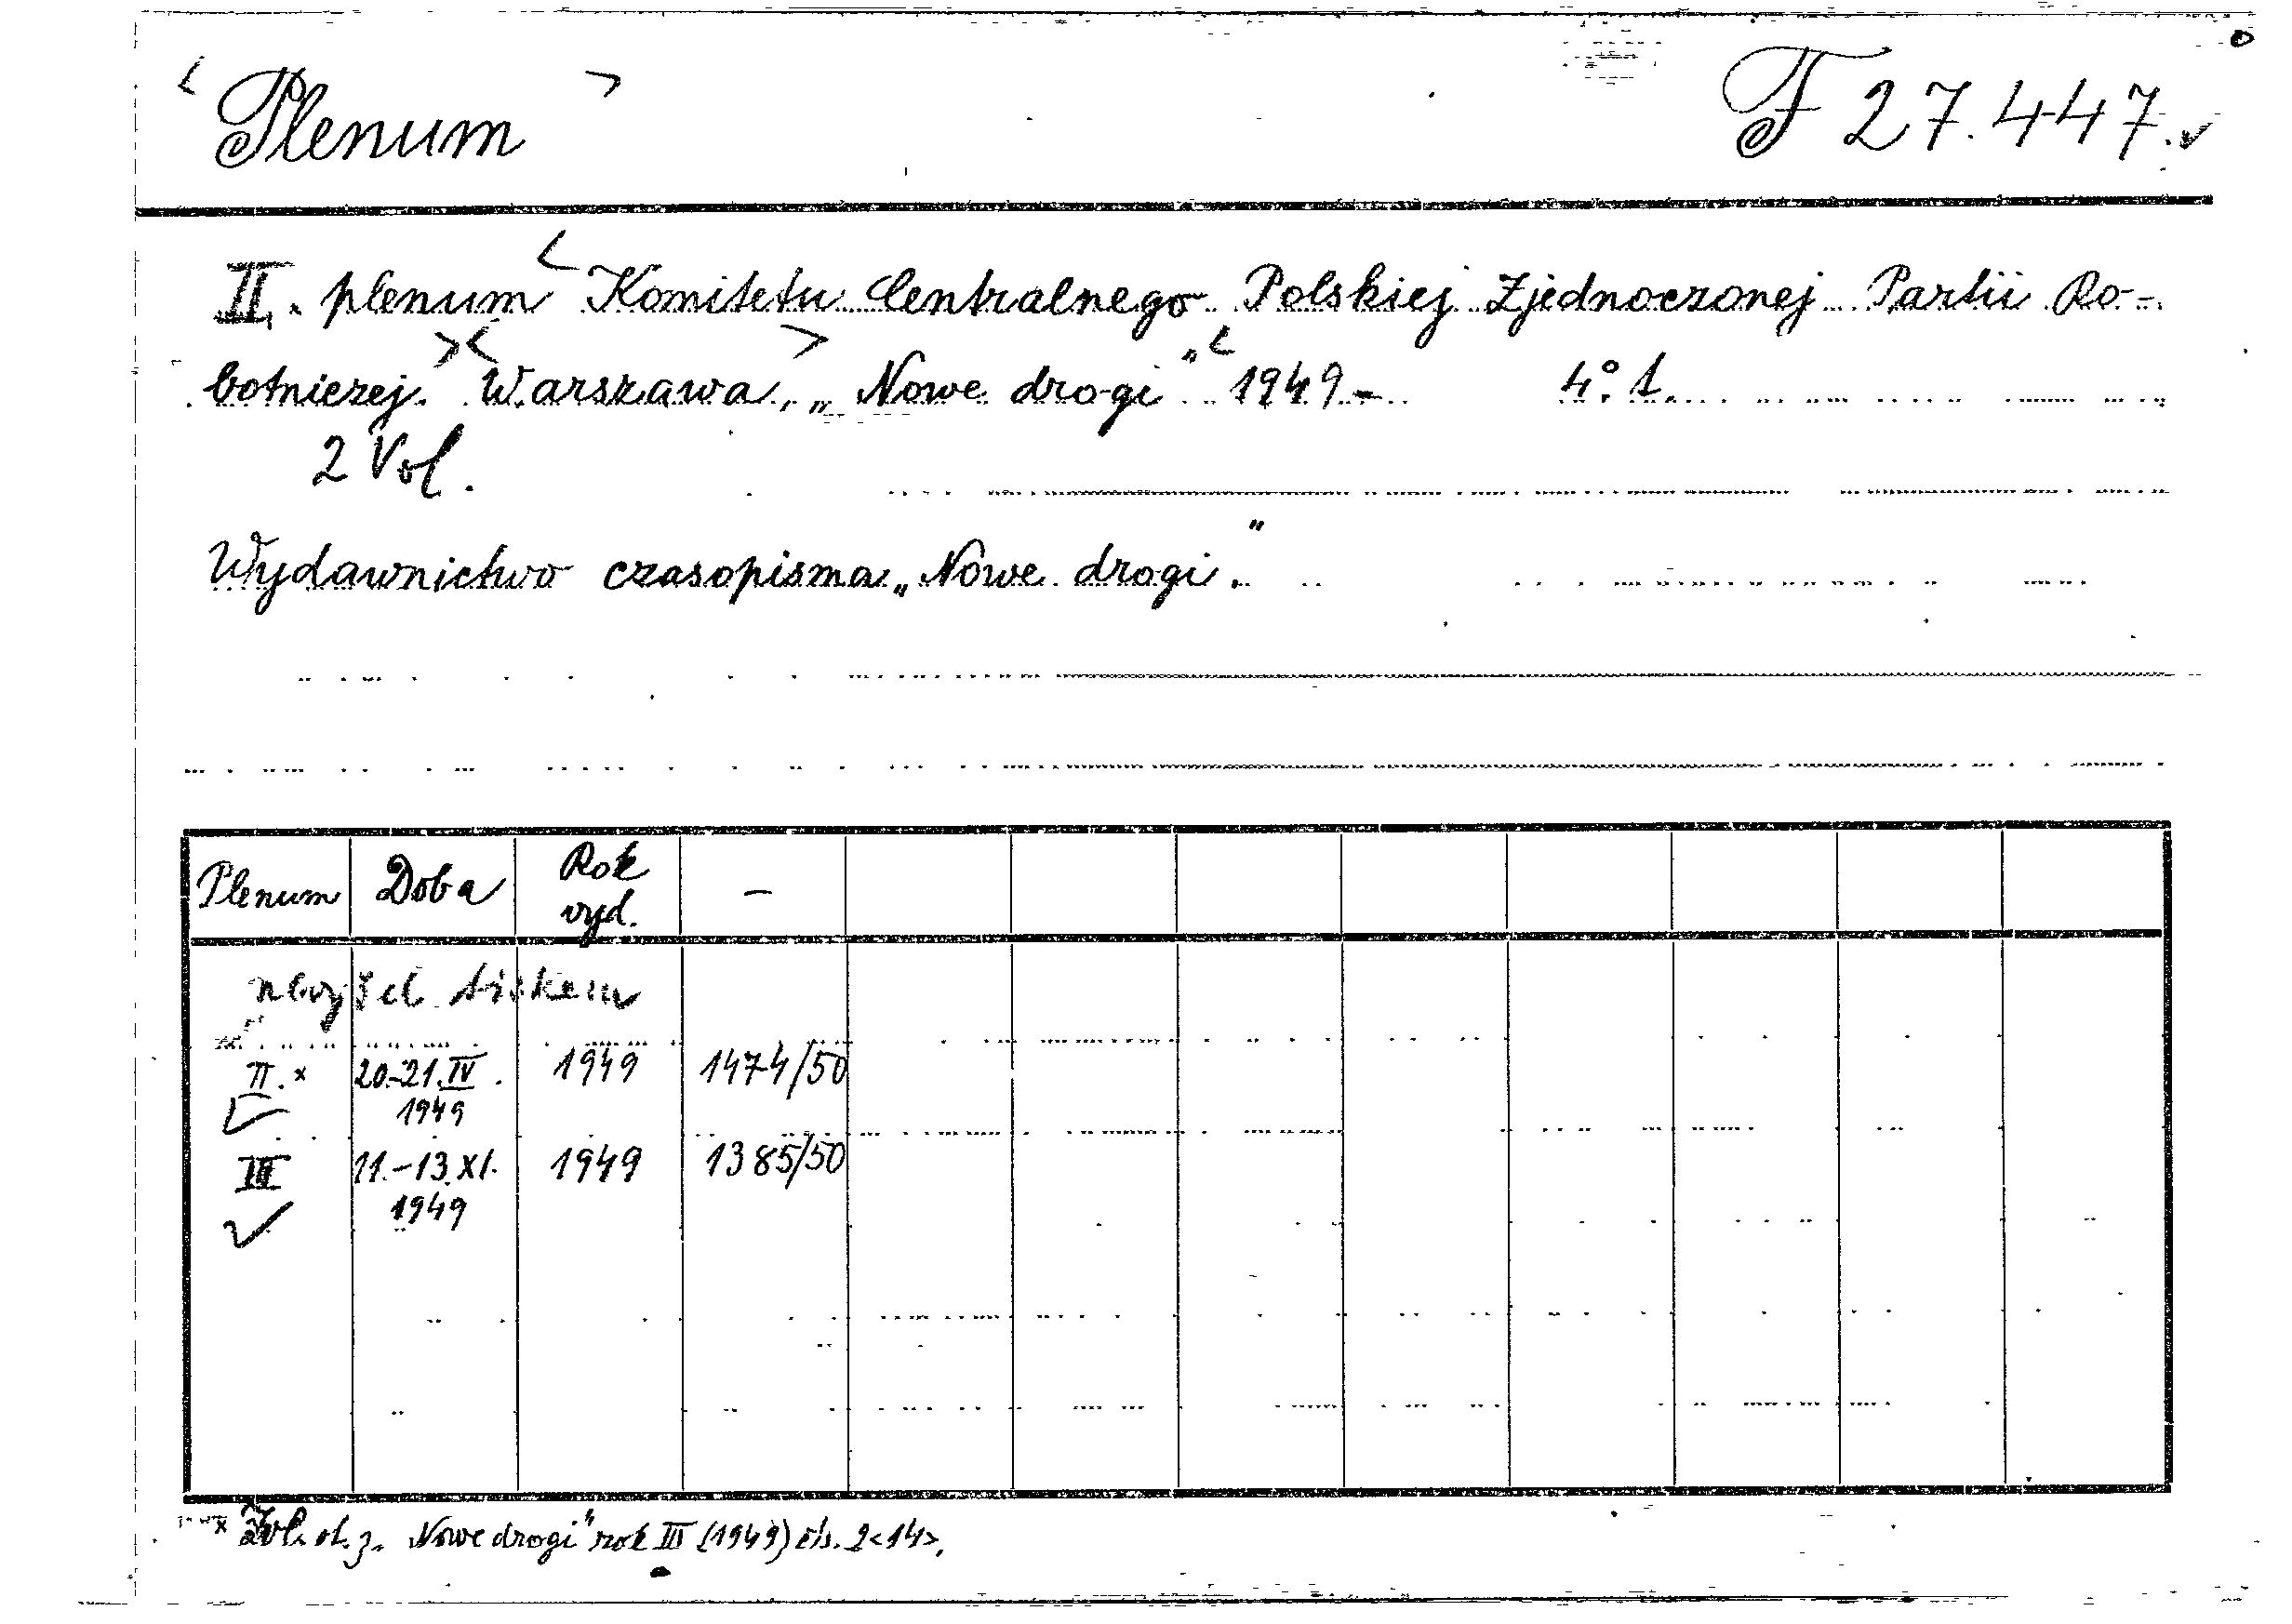 < Plenum > F 27.447.
II. plenum < Komitetu Centralnego Polskiej Zjednoczonej Partii Ro-
botniczej. >< Warszawa, > „Nowe drogi" < 1949- 4° 1.
2 Vol.
Wydawnictwo czasopisma „Nowe drogi."
Plenum Doba Rok vyd. –
nevyšel tiskem
II. x 20.-21.IV. 1949 1949 1474/50
III 11.-13.XI. 1949 1949 1385/50
x Zvl. ot. z. Nowe drogi" rok III (1949) čís. 2<14>.